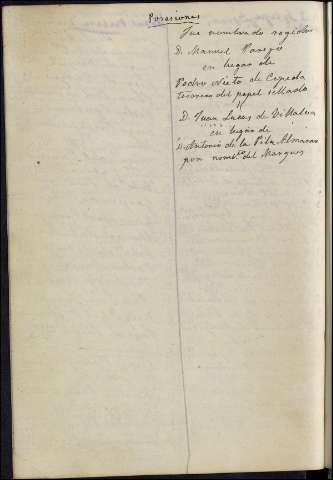 Posesiones
Fue nombrado regidor
D. Manuel
en lugar de
Pedro Nieto de Cepeda
tesorero del papel sellado
"
D. Juan Lucas de Villalva
en lugar de
D. Antonio de la Pila Almaran
por nomb.to del Marques